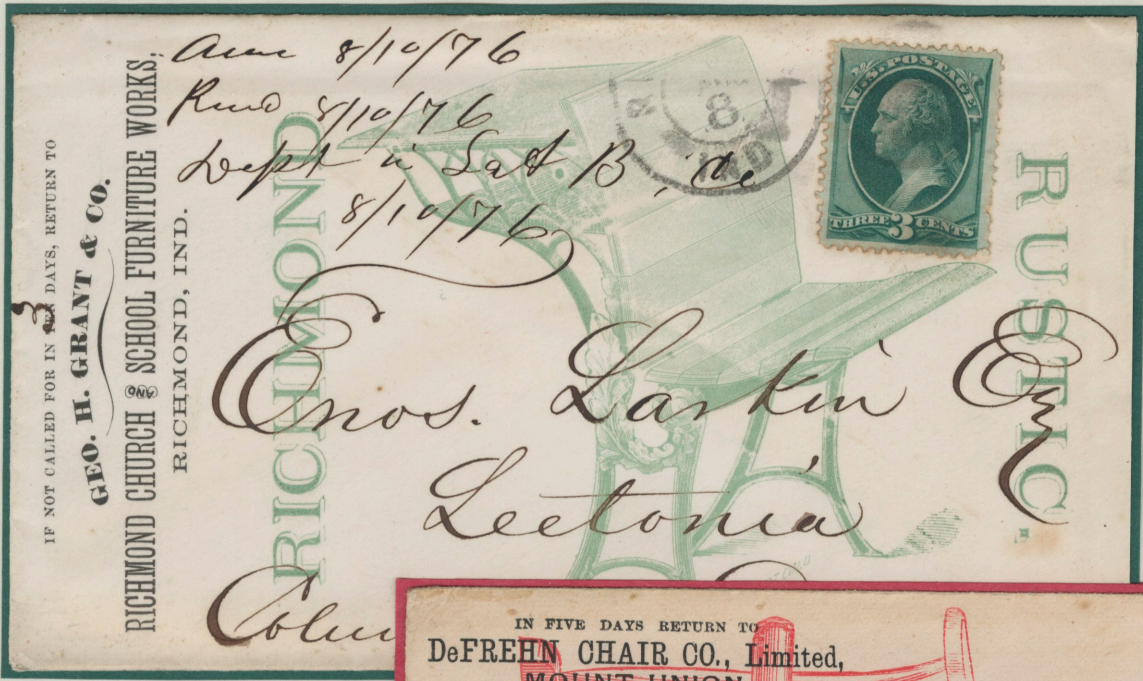 IF NOT CALLED FOR IN 3 DAYS, RETURN TO
GEO. H. GRANT & CO.
RICHMOND CHURCH AND SCHOOL FURNITURE WORKS,
RICHMOND, IND.
8/10/76
8/10/76
Dept in B
8/10/76
RICHMOND
RUSTIC.
R
8
IND
U.S. POSTAGE
THREE 3 CENTS
Enos. Larkin Esq
Leetonia
Colum
IN FIVE DAYS RETURN TO
DeFREHN CHAIR CO., Limited,
MOUNT UNION